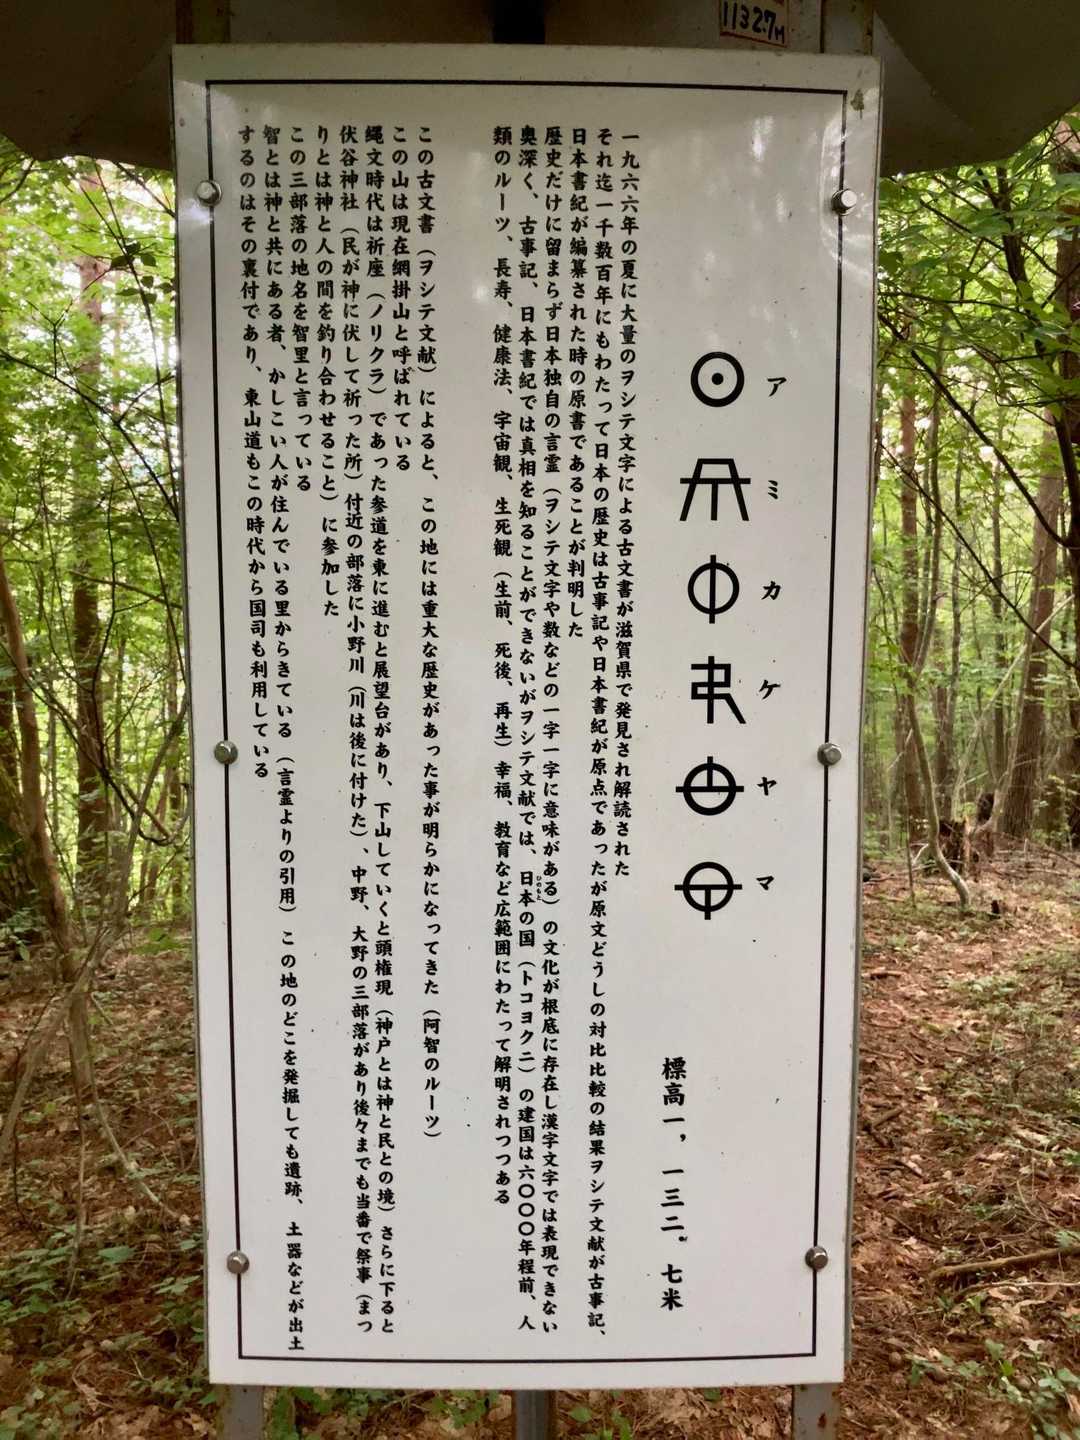 11327M
アミカケヤマ
標高一，一三二．七米
一九六六年の夏に大量のヲシテ文字による古文書が滋賀県で発見され解読された
それ迄一千数百年にもわたって日本の歴史は古事記や日本書紀が原点であったが原文どうしの対比比較の結果ヲシテ文献が古事記、
日本書紀が編纂された時の原書であることが判明した
歴史だけに留まらず日本独自の言霊（ヲシテ文字や数などの一字一字に意味がある）の文化が根底に存在し漢字文字では表現できない
奥深く、古事記、日本書紀では真相を知ることができないがヲシテ文献では、日本の国（トコヨクニ）の建国は六〇〇〇年程前、人
ひのもと
類のルーツ、長寿、健康法、宇宙観、生死観（生前、死後、再生）幸福、教育など広範囲にわたって解明されつつある
この古文書（ヲシテ文献）によると、この地には重大な歴史があった事が明らかになってきた（阿智のルーツ）
この山は現在網掛山と呼ばれている
縄文時代は祈座（ノリクラ）であった参道を東に進むと展望台があり、下山していくと頭権現（神戸とは神と民との境）さらに下ると
伏谷神社（民が神に伏して祈った所）付近の部落に小野川（川は後に付けた）、中野、大野の三部落があり後々までも当番で祭事（まつ
りとは神と人の間を釣り合わせること）に参加した
この三部落の地名を智里と言っている
智とは神と共にある者、かしこい人が住んでいる里からきている（言霊よりの引用）この地のどこを発掘しても遺跡、土器などが出土
するのはその裏付であり、東山道もこの時代から国司も利用している